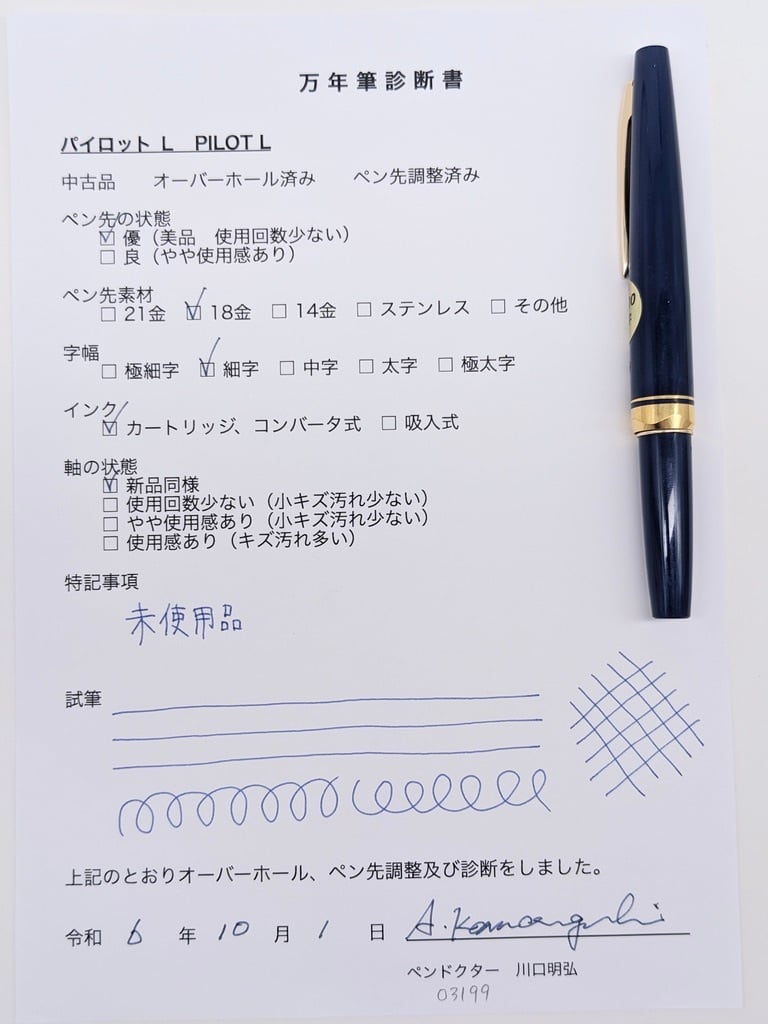 万年筆診断書
パイロット L PILOT L
中古品 オーバーホール済み ペン先調整済み
ペン先の状態
☑ 優（美品 使用回数少ない）
☐ 良（やや使用感あり）
ペン先素材
☐ 21金 ☑ 18金 ☐ 14金 ☐ ステンレス ☐ その他
字幅
☐ 極細字 ☑ 細字 ☐ 中字 ☐ 太字 ☐ 極太字
インク
☑ カートリッジ、コンバータ式 ☐ 吸入式
軸の状態
☑ 新品同様
☐ 使用回数少ない（小キズ汚れ少ない）
☐ やや使用感あり（小キズ汚れ少ない）
☐ 使用感あり（キズ汚れ多い）
特記事項
未使用品
試筆
上記のとおりオーバーホール、ペン先調整及び診断をしました。
令和 6 年 10 月 1 日 A. Kawaguchi
ペンドクター 川口明弘
03199